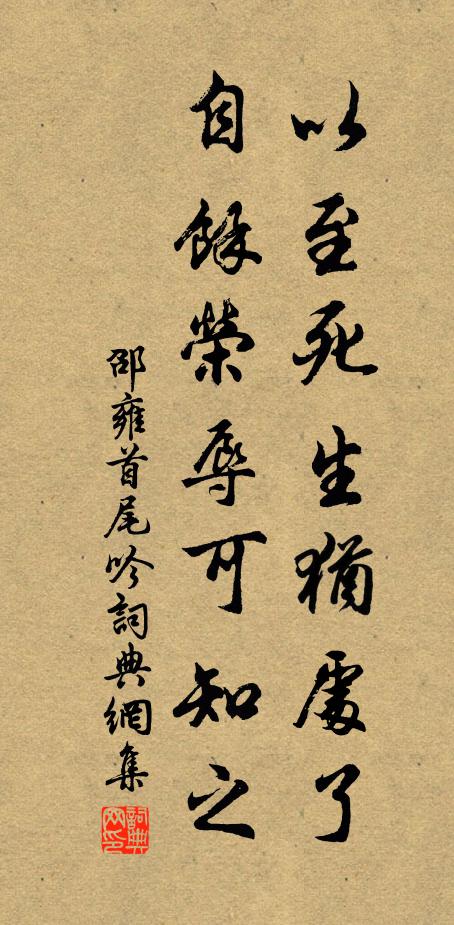 以至死生猶處了
自餘榮辱可知之
邵雍首尾吟詞典網集
詞典網印